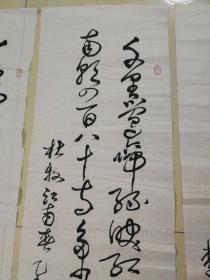 千里莺啼绿映红
南朝四百八十寺多少
杜牧江南春